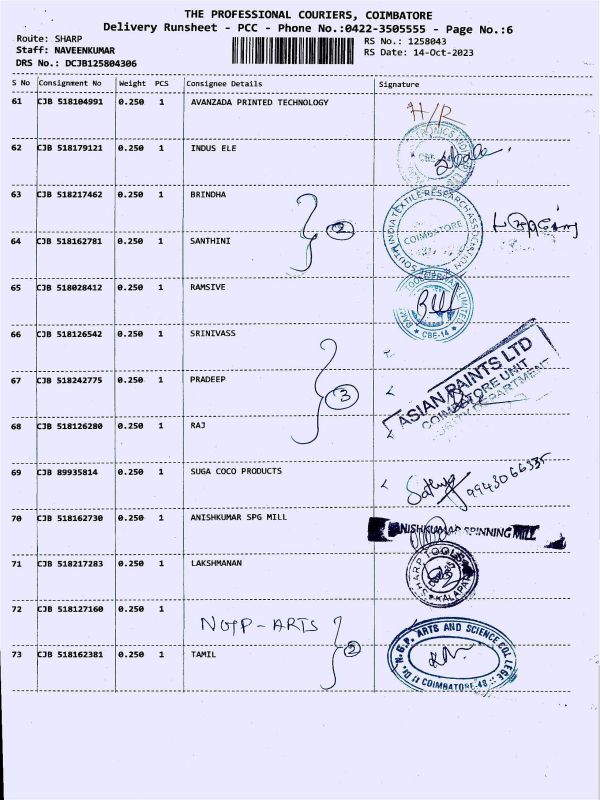 THE PROFESSIONAL COURIERS, COIMBATORE
Delivery Runsheet - PCC - Phone No.:0422-3505555 - Page No.:6
Route: SHARP
Staff: NAVEENKUMAR
DRS No.: DCJB125804306
RS No.: 1258043
RS Date: 14-Oct-2023
S No Consignment No Weight PCS Consignee Details Signature
61 CJB 518104991 0.250 1 AVANZADA PRINTED TECHNOLOGY H/R
62 CJB 518179121 0.250 1 INDUS ELE
63 CJB 518217462 0.250 1 BRINDHA
2
SOUTH INDIA TEXTILE RESEARCH ASSOCIATION
COIMBATORE
64 CJB 518162781 0.250 1 SANTHINI
65 CJB 518028412 0.250 1 RAMSIVE
CBE-14
66 CJB 518126542 0.250 1 SRINIVASS
67 CJB 518242775 0.250 1 PRADEEP
3
ASIAN PAINTS LTD
COIMBATORE UNIT
DEPARTMENT
68 CJB 518126280 0.250 1 RAJ
69 CJB 89935814 0.250 1 SUGA COCO PRODUCTS
70 CJB 518162730 0.250 1 ANISHKUMAR SPG MILL
ANISHKUMAR SPINNING MILL
71 CJB 518217283 0.250 1 LAKSHMANAN
SHARP TOOLS
KALAPATTI
72 CJB 518127160 0.250 1
NGP-ARTS
2
N.G.P. ARTS AND SCIENCE COLLEGE
COIMBATORE-48
73 CJB 518162381 0.250 1 TAMIL